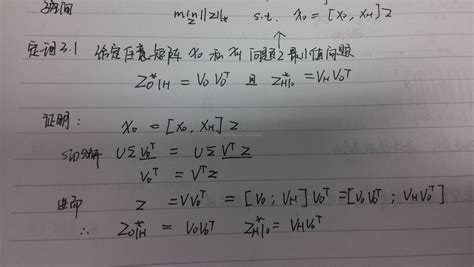 min ||Z||* s.t. X₀ = [X₀, X_H] Z
Z
定理3.1 给定任意矩阵 X₀ 和 X_H 问题2 最小值问题
Z*₀|H = V₀V₀ᵀ 且 Z*H|₀ = V_H V₀ᵀ
证明: X₀ = [X₀, X_H] Z
SVD分解 UΣV₀ᵀ = UΣVᵀZ
V₀ᵀ = VᵀZ
进而 Z = VV₀ᵀ = [V₀; V_H] V₀ᵀ = [V₀V₀ᵀ; V_H V₀ᵀ]
∴ Z*₀|H = V₀V₀ᵀ Z*H|₀ = V_H V₀ᵀ